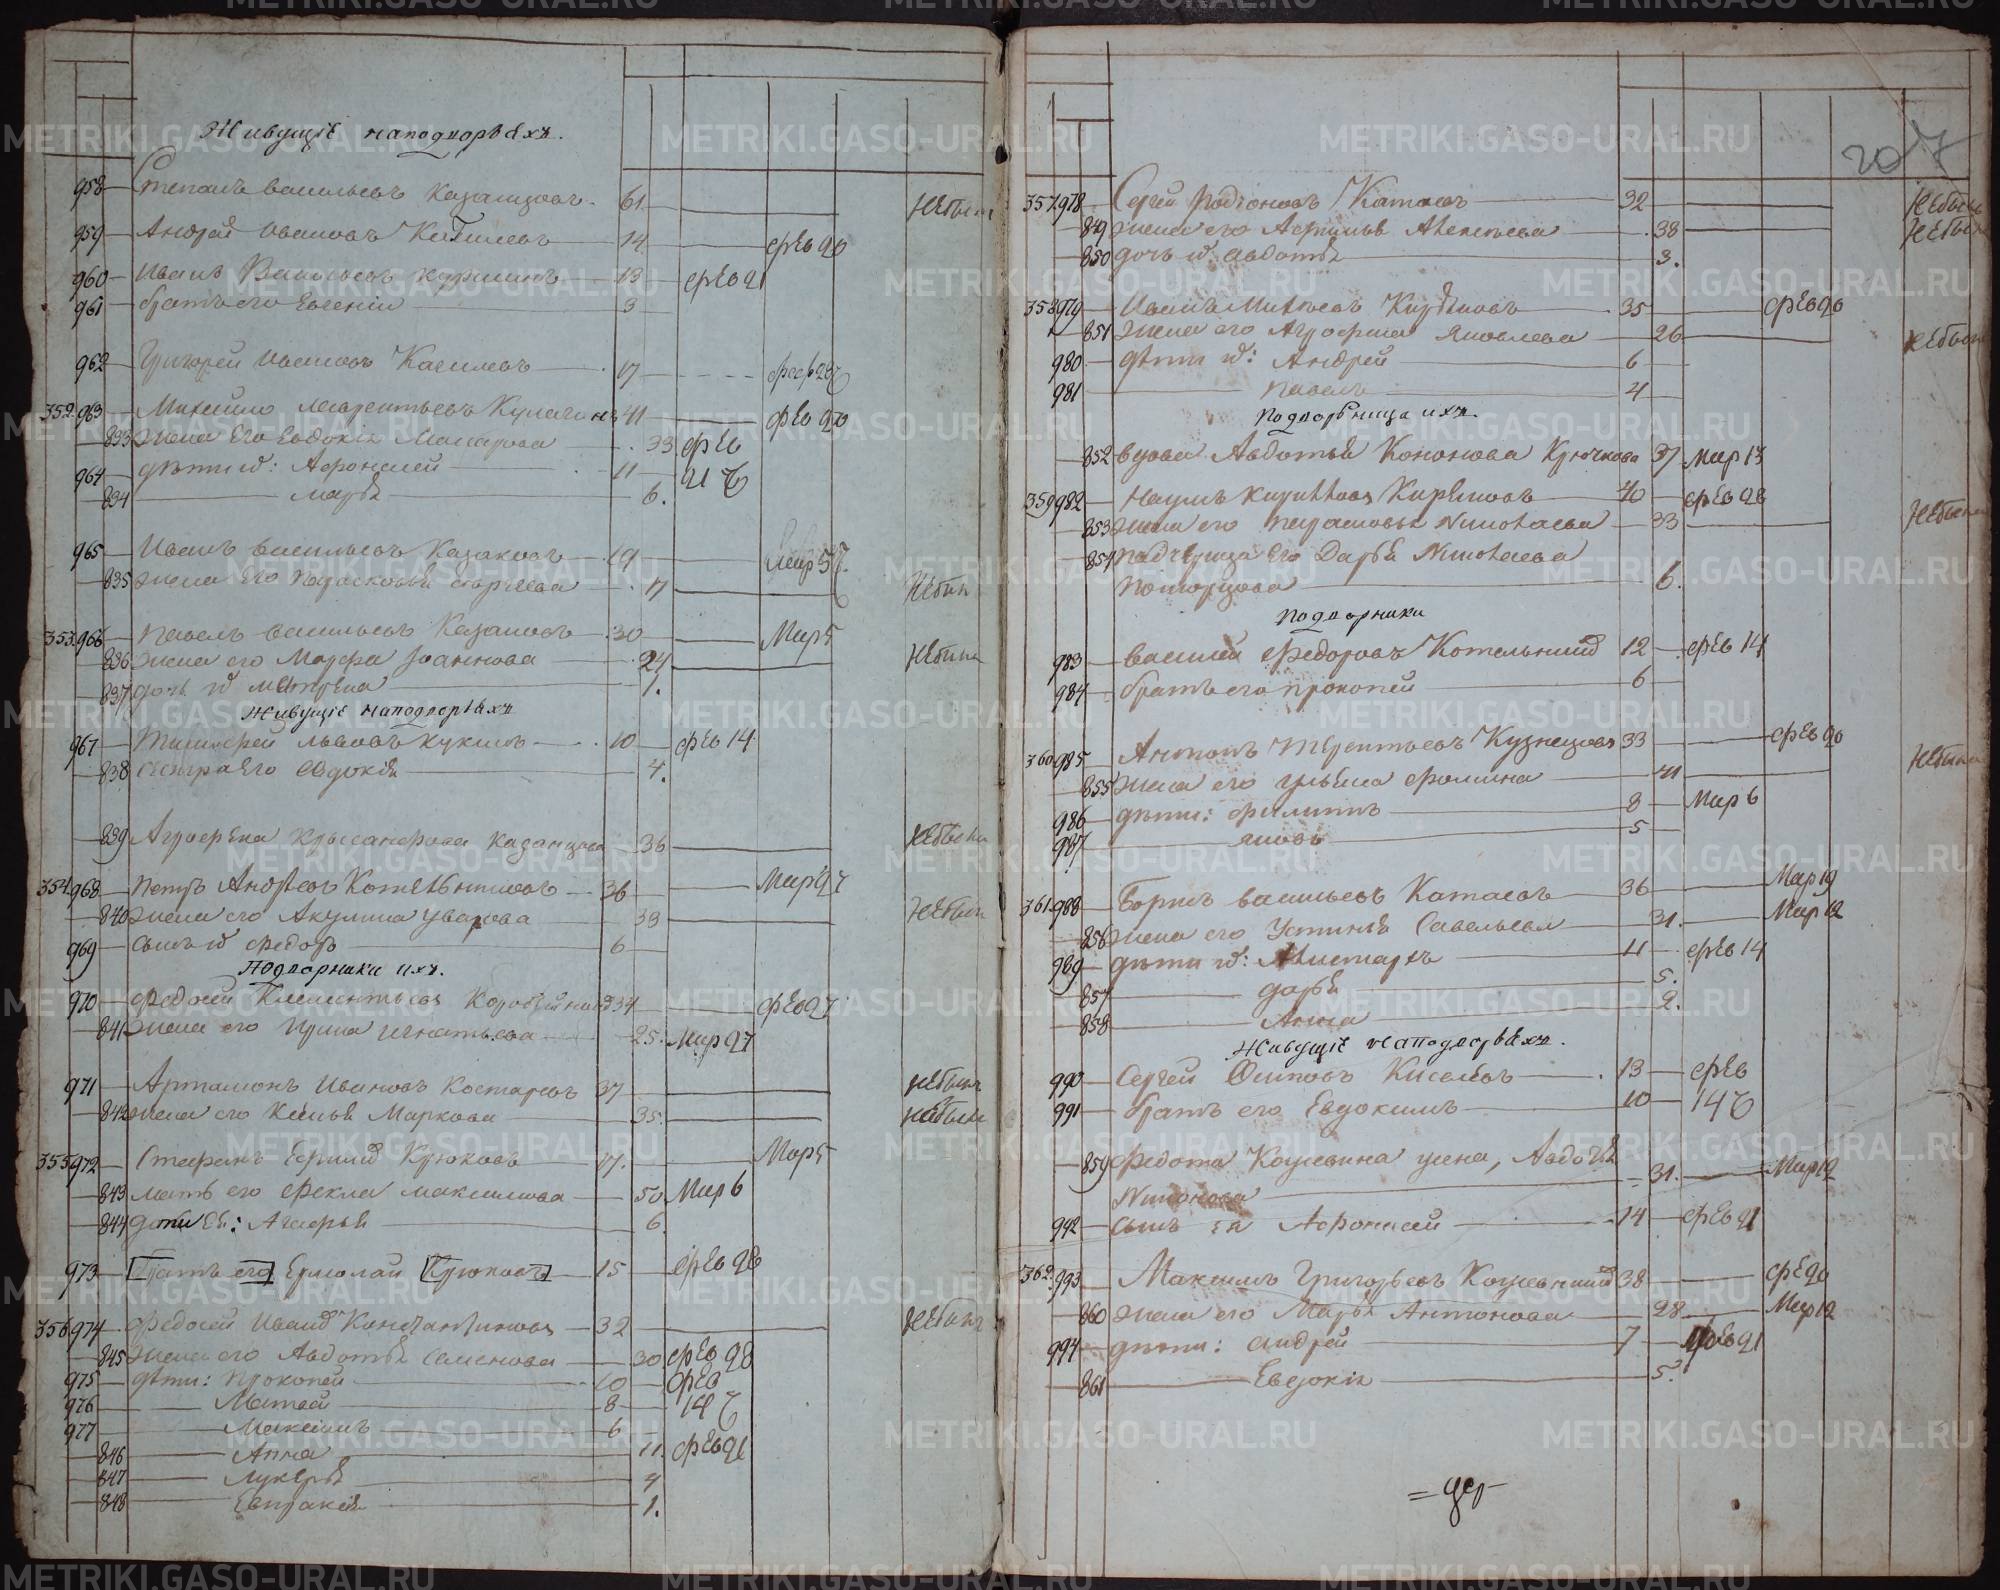 Живущіе на подворьяхъ.
958 Степанъ Васильевъ Казанцовъ 61 не былъ
959 Андрей Ивановъ 14 фев 20
960 Иванъ Васильевъ 13 фев 21
961 братъ его Евгеній 3
962 Григорей Ивановъ 17
352 963 Михайло Лаврентьевъ Кулагинъ 41 фев 20
833 жена его Евдокія Макарова 33 фев
964 дѣти их: Афонасей 11 21 ч
834 Марья 6.
965 Иванъ Васильевъ Казаковъ 19
835 жена его Парасковья 17 не был
353 966 Павелъ Васильевъ 30 Мар 5
836 жена его Марфа Іоаннова 24 не была
837 дочь их Матрена 1.
Живущіе на подворьяхъ
967 Тимофей Львовъ Кукинъ 10 фев 14
838 сестра его Евдокія 4.
839 Агрофена Хрисанфова Казанцова 36 не была
354 968 Петръ Андреевъ Котельниковъ 36 Мар 27
840 жена его Акулина Уварова 33 не был
969 сынъ их Федоръ 6
Подворники ихъ.
970 Федосей Клементьевъ 34 фев 27
841 жена его Ирина Игнатьева 25. Мар 27
971 Артамонъ Ивановъ Костаревъ 37 не былъ
842 жена его Ксенья Маркова 35. не была
355 972 Стефанъ Крюковъ 17. Мар 5
843 мать его Фекла Максимова 50 Мар 6
844 дочь ея: Агафья 6.
973 братъ его Ермолай Крюковъ 15 фев 28
356 974 Федосей Константинова 32 не былъ
845 жена его Авдотья Семенова 30 фев 28
975 дѣти: Прокопей 10 фев
976 Матвей 8 14 ч
977 Максимъ 6
846 Анна 11. фев 21
847 Лукерья 4
848 Евпраксія 1.
207
357 978 Сергей Родіоновъ Катаевъ 32 не былъ
849 жена его 38 не была
850 дочь их Авдотья 3.
358 979 Иванъ 35 фев 20
851 жена его Агрофена Яковлева 26 не была
980 дѣти их: Андрей 6
981 Павелъ 4
Подворница ихъ.
852 вдова Авдотья Кононова Крючкова 37 Мар 13
359 982 Наумъ 40 фев 28
853 жена его Парасковья Николаева 33 не была
854 падчерица его Дарья Николаева
6.
Подворники
983 Василей Федоровъ 12 фев 14
984 братъ его Прокопей 6
360 985 Антонъ Терентьевъ Кузнецовъ 33 фев 20
855 жена его Ульяна Фомина 41 не была
986 дѣти: Филипъ 8 Мар 6
987 Яковъ 5
361 988 Борисъ Васильевъ Катаевъ 36 Мар 19
856 жена его Устинья Савельева 31. Мар 12
989 дѣти их: Аристархъ 11 фев 14
857 Дарья 5.
858 Анна 2.
Живущіе на подворьяхъ.
990 Сергей Осиповъ Киселевъ 13 фев
991 братъ его Евдокимъ 10 14 ч
859 Федота Кожевина жена, Авдотья
31. Мар 12
992 сынъ ея Афонасей 14 фев 21
362 993 Максимъ Григорьевъ 38 фе 20
860 жена его Марья Антонова 28. Мар 12
994 дѣти: Андрей 7 фев 21
861 Евдокія 5.